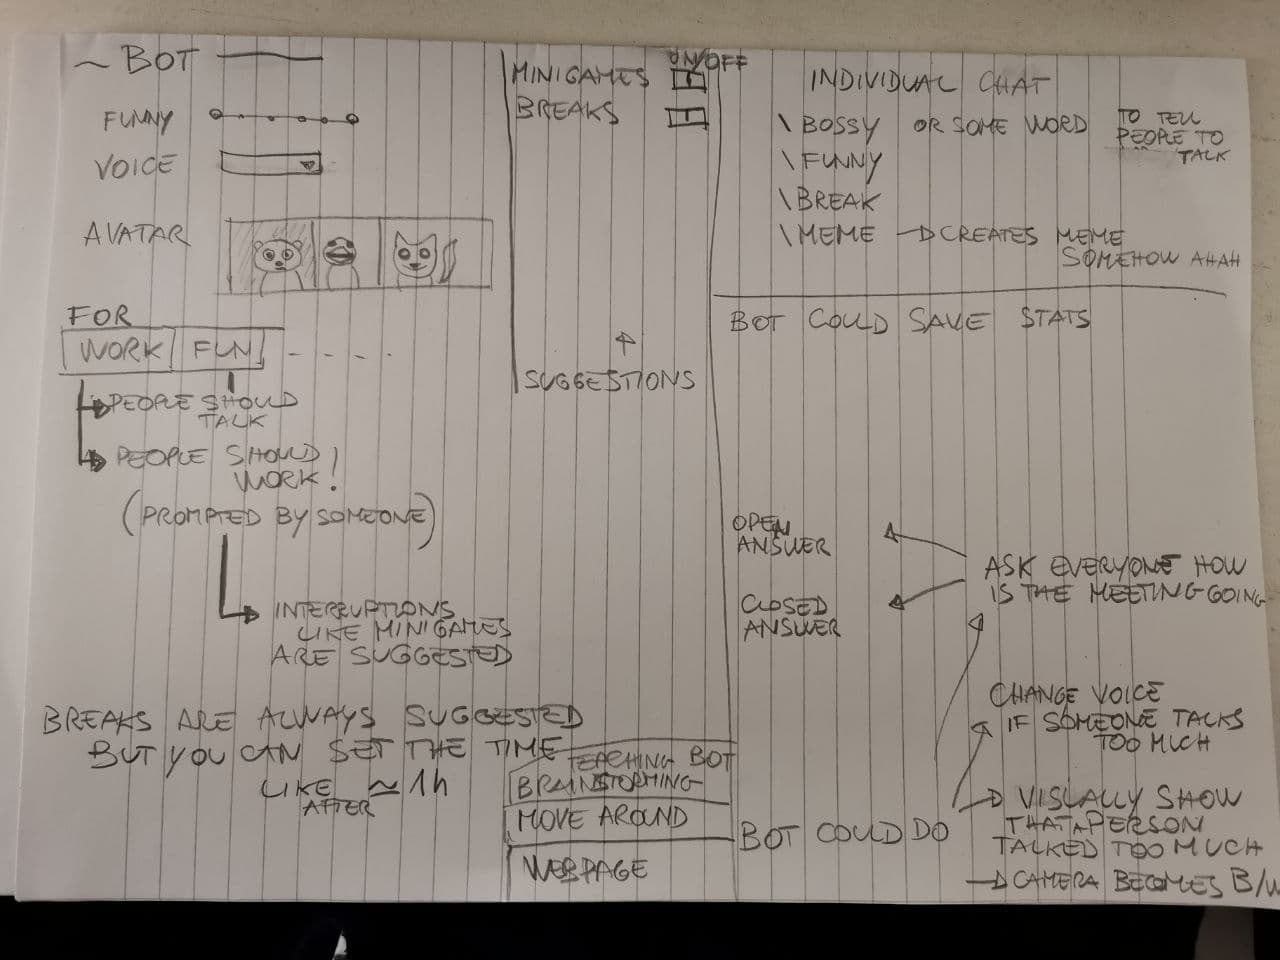 ~ BOT
FUNNY
VOICE
AVATAR
FOR
WORK FUN - - - -
PEOPLE SHOULD
TALK
PEOPLE SHOULD
WORK!
(PROMPTED BY SOMEONE)
INTERRUPTIONS
LIKE MINIGAMES
ARE SUGGESTED
BREAKS ARE ALWAYS SUGGESTED
BUT YOU CAN SET THE TIME
LIKE AFTER ≈ 1h
ON/OFF
MINIGAMES
BREAKS
SUGGESTIONS
TEACHING BOT
BRAINSTORMING
MOVE AROUND
WEBPAGE
INDIVIDUAL CHAT
\ BOSSY OR SOME WORD TO TELL
PEOPLE TO
TALK
\ FUNNY
\ BREAK
\ MEME → CREATES MEME
SOMEHOW AHAH
BOT COULD SAVE STATS
OPEN
ANSWER
CLOSED
ANSWER
ASK EVERYONE HOW
IS THE MEETING GOING
CHANGE VOICE
IF SOMEONE TALKS
TOO MUCH
BOT COULD DO
→ VISUALLY SHOW
THAT A PERSON
TALKED TOO MUCH
→ CAMERA BECOMES B/W